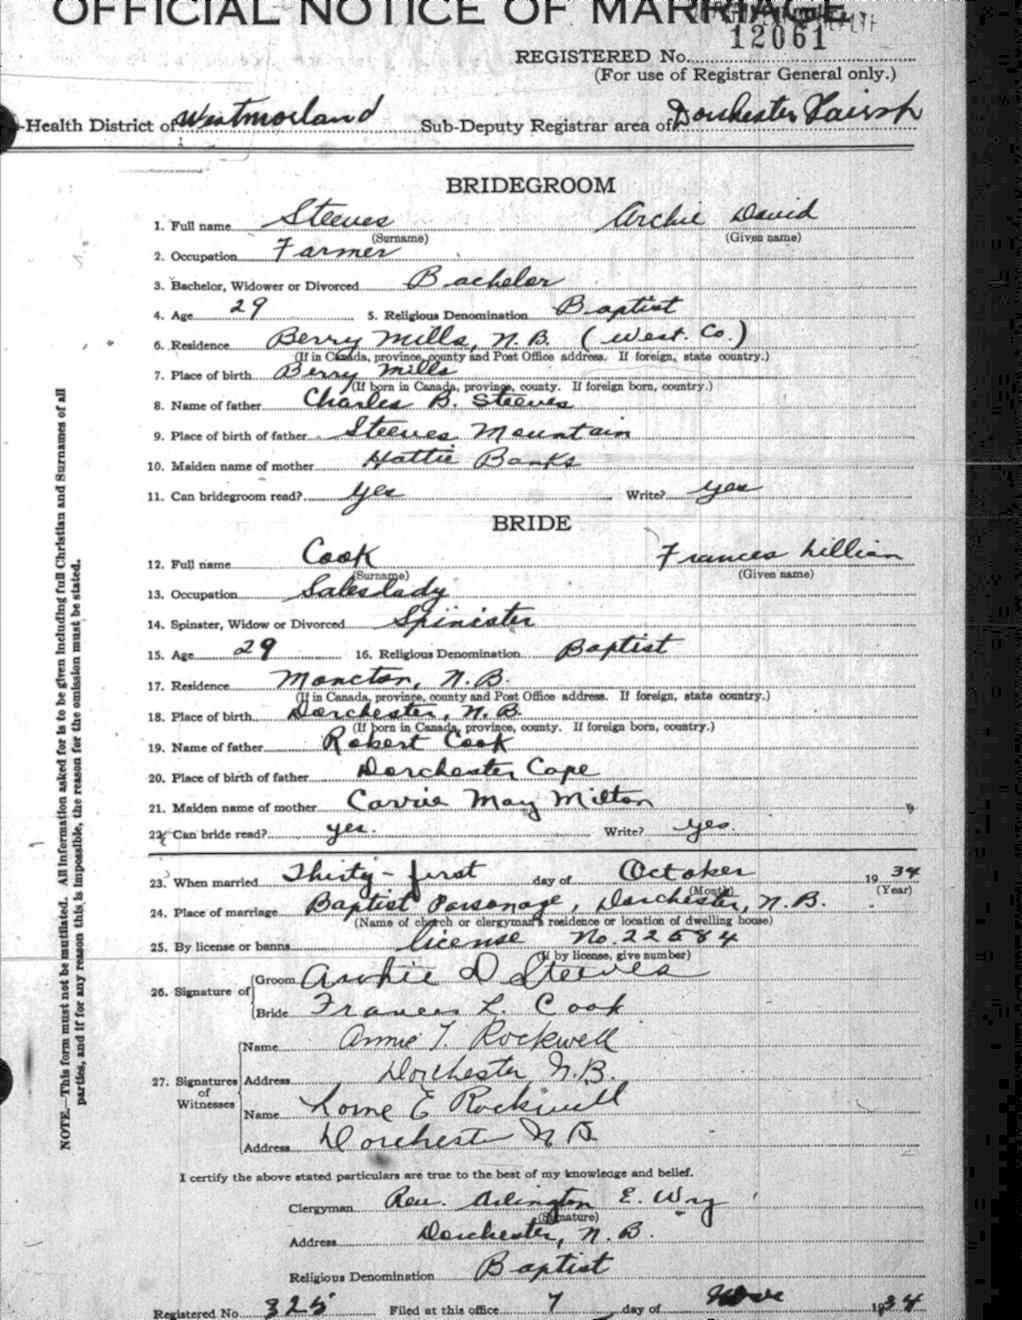 OFFICIAL NOTICE OF MARRIAGE.
12061
REGISTERED No.
(For use of Registrar General only.)
-Health District of Westmorland Sub-Deputy Registrar area of Dorchester Parish
BRIDEGROOM
1. Full name Steeves Archie David
(Surname) (Given name)
2. Occupation Farmer
3. Bachelor, Widower or Divorced Bachelor
4. Age 29 5. Religious Denomination Baptist
6. Residence Berry Mills, N.B. (West. Co.)
(If in Canada, province, county and Post Office address. If foreign, state country.)
7. Place of birth Berry Mills
(If born in Canada, province, county. If foreign born, country.)
8. Name of father Charles B. Steeves
9. Place of birth of father Steeves Mountain
10. Maiden name of mother Hattie Banks
11. Can bridegroom read? yes Write? yes
BRIDE
12. Full name Cook Frances Lillian
(Surname) (Given name)
13. Occupation Saleslady
14. Spinster, Widow or Divorced Spinister
15. Age 29 16. Religious Denomination Baptist
17. Residence Moncton, N.B.
(If in Canada, province, county and Post Office address. If foreign, state country.)
18. Place of birth Dorchester, N.B.
(If born in Canada, province, county. If foreign born, country.)
19. Name of father Robert Cook
20. Place of birth of father Dorchester Cape
21. Maiden name of mother Carrie May Milton
22. Can bride read? yes. Write? yes.
23. When married Thirty-first day of October 1934
(Month) (Year)
24. Place of marriage Baptist Parsonage, Dorchester, N.B.
(Name of church or clergyman's residence or location of dwelling house)
25. By license or banns license No. 22584
(If by license, give number)
26. Signature of Groom Archie D Steeves
Bride Frances L. Cook
27. Signatures of Witnesses
Name Annie T. Rockwell
Address Dorchester N.B.
Name Lorne E Rockwell
Address Dorchester N B
I certify the above stated particulars are true to the best of my knowledge and belief.
Clergyman Rev. Arlington E. Wry
(Signature)
Address Dorchester, N.B.
Religious Denomination Baptist
Registered No. 325 Filed at this office 7 day of Nov 1934
NOTE.—This form must not be mutilated. All information asked for is to be given including full Christian and Surnames of all
parties, and if for any reason this is impossible, the reason for the omission must be stated.